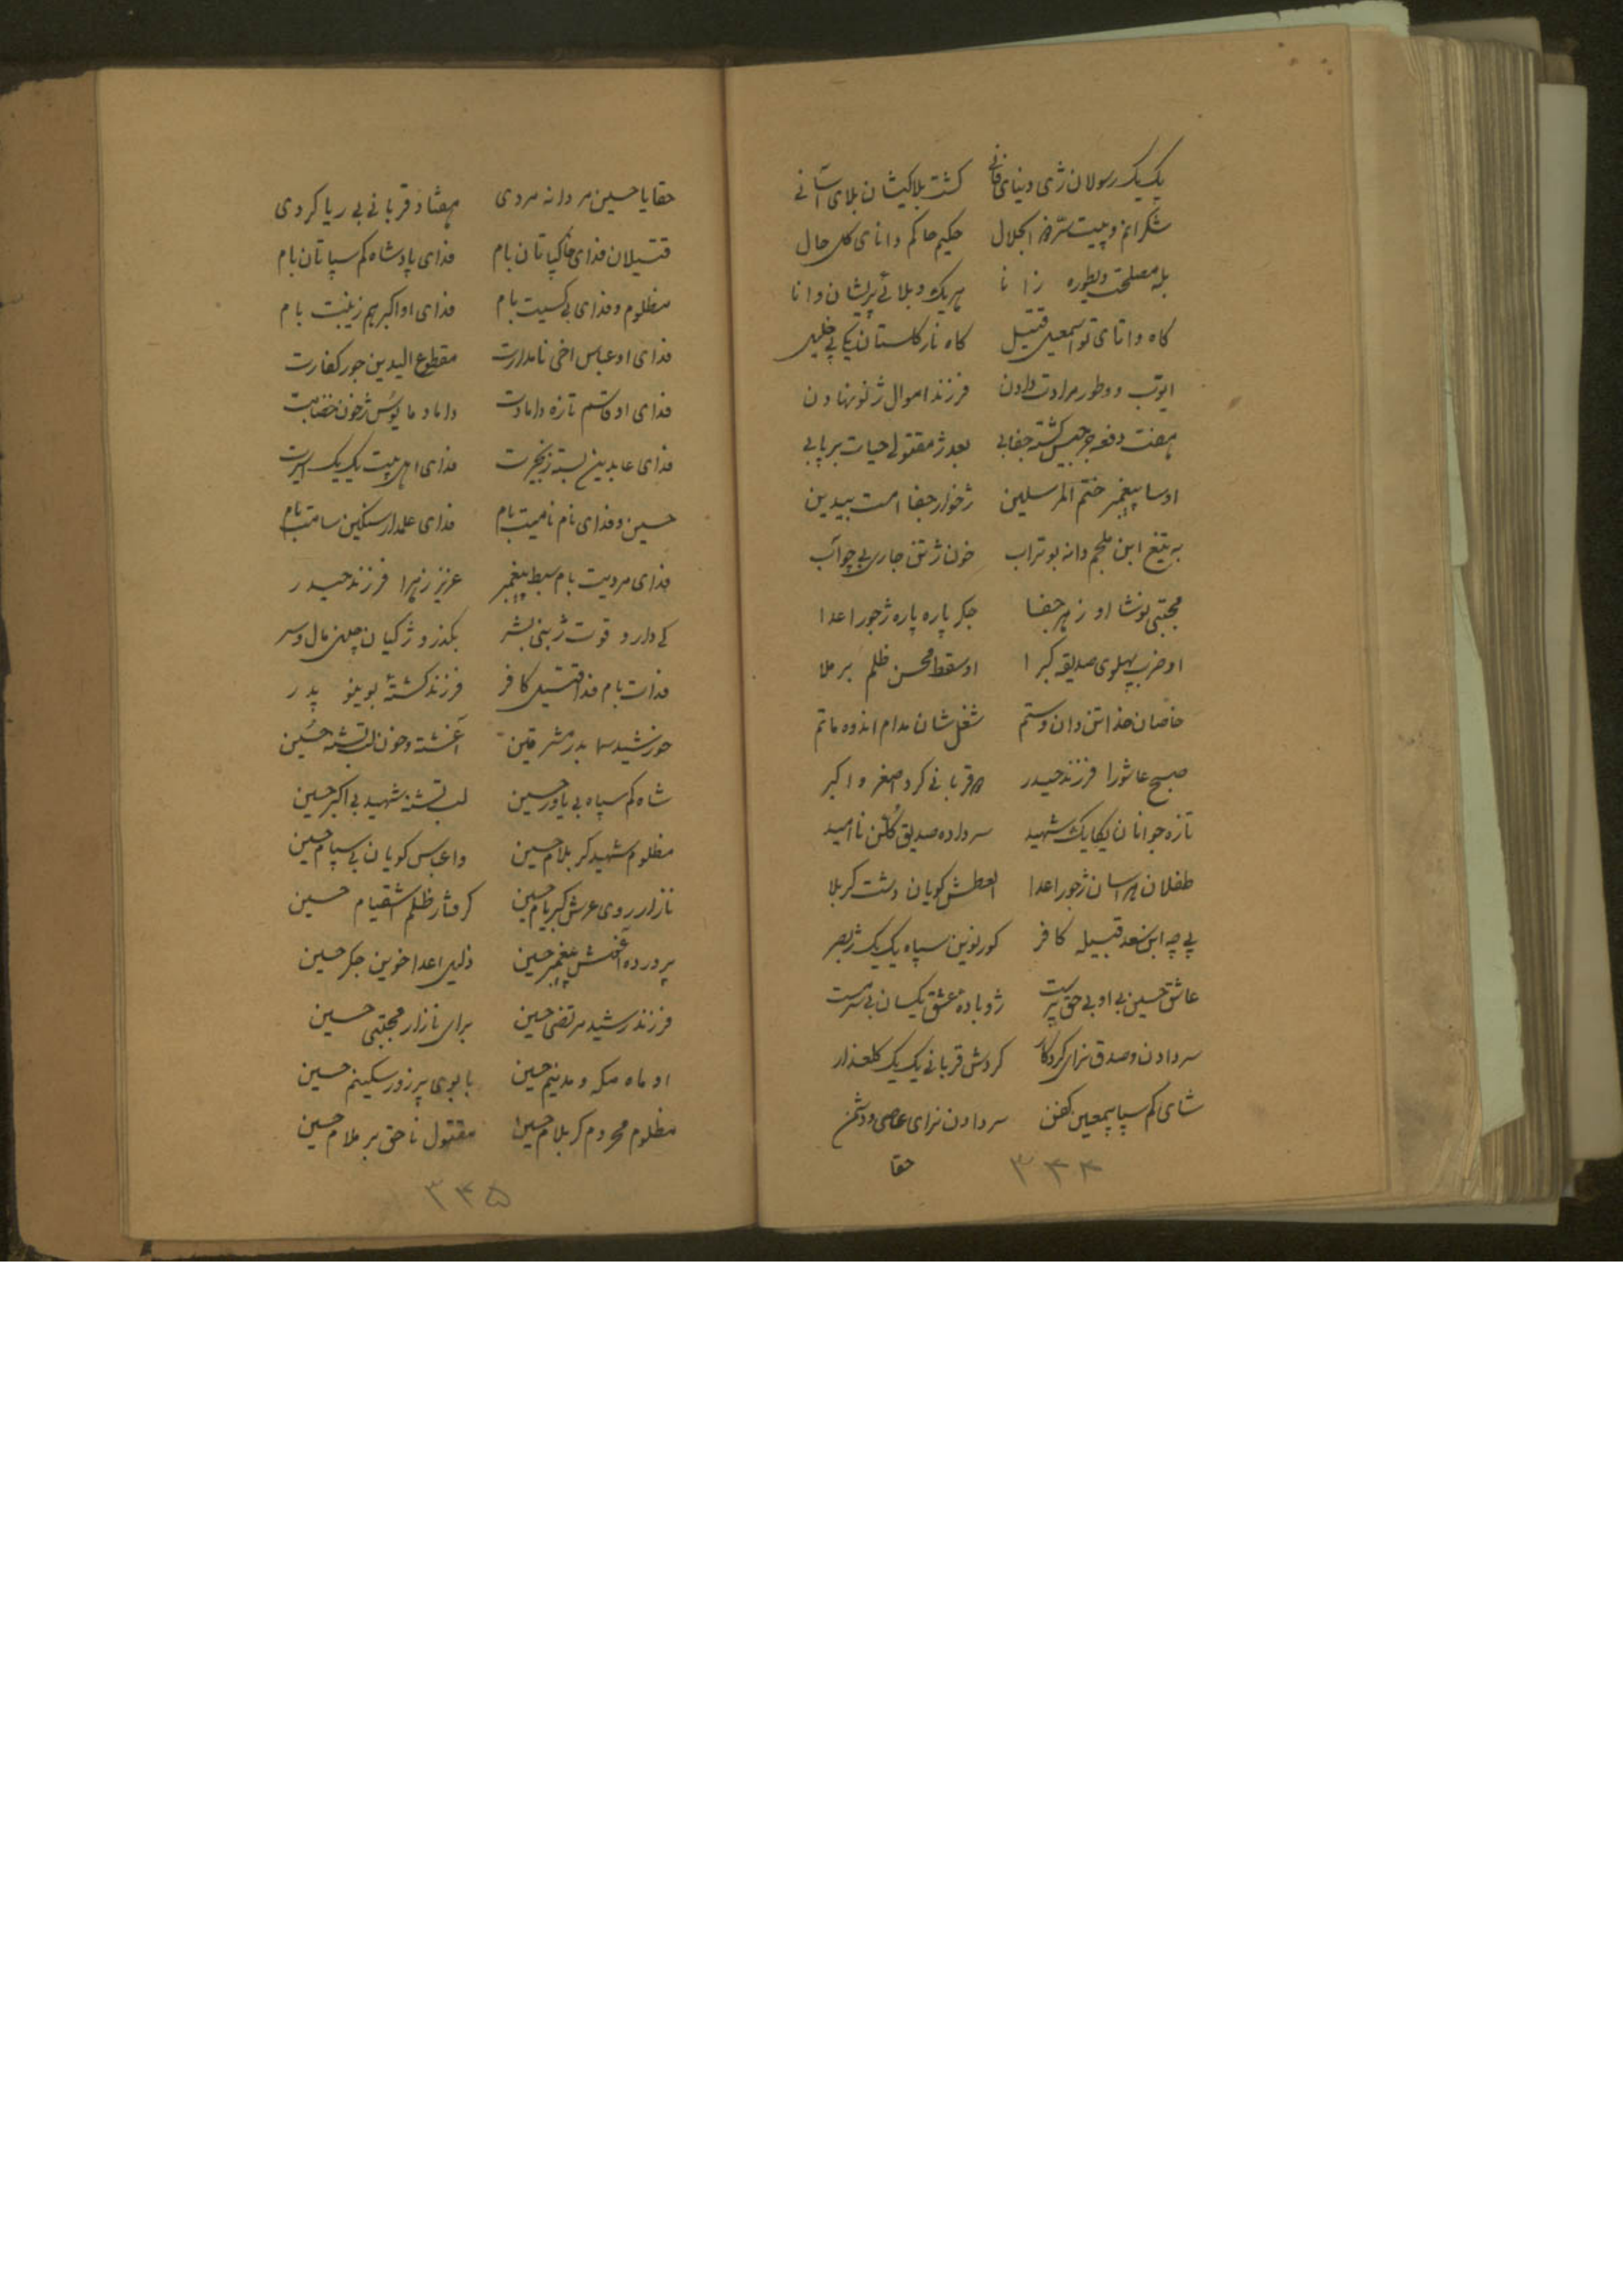 یک یک رسولان ژی دنیای فانی کشت بلاکیشان بلای آسانی
شکرانم وپیت سر ذو الجلال حکیم حاکم دانای کل حال
بله مصلحت وطوره زانا هر یک وبلائی پریشان وانا
کاه واتای تو اسمعیل قتیل کاه نار کلستان یکی پی خلیل
ایوب ووطور مرادت دادن فرزند اموال ژنو نهادن
هفت دفعه جرجیس کشته جفایی بعد ژ مقتولی حیات برپایی
اوسا پیغمبر ختم المرسلین ژخوار جفا امت بیدین
به تیغ ابن ملجم دانه بوتراب خون ژتن جاری بی چو آب
مجتبی نوشا او زهر جفا جکر پاره پاره ژجور اعدا
او ضرب پهلوی صدیقه کبرا او سقط محسن ظلم برملا
خاصان هذا تن دان وستم شغل شان مدام اندوه ماتم
صبح عاشورا فرزند حیدر قربانی کرد اصغر و اکبر
تازه جوانان یکایک شهید سرداده صدیق کلن ناامید
طفلان هراسان ژجور اعدا العطش کویان دشت کربلا
پی چه ابن سعد قبیله کافر کور نوین سپاه یک یک ژبصر
عاشق حسین بی او بی حق پرست ژو باده عشق یکسان بی سرمست
سردادن وصدق نرای کردکار کردش قربانی یک یک کلعذار
شای کم سپا پیمعین کفن سردادن نرای عاصی ودشمن
حقا
۳۴۴
حقا یا حسین مردانه مردی هفتاد قربانی بی ریا کردی
قتیلان فدای خاکپاتان بام فدای پادشاه کم سپاتان بام
مظلوم وفدای بیکسیت بام فدای او اکبر هم زینبت بام
فدای او عباس اخی نامدارت مقطوع الیدین جور کفارت
فدای او قاسم تازه دامادت داماد مایوس ژخون خضابت
فدای عابدین بسته زنجیرت فدای اهل بیت یک یک اسیرت
حسین وفدای نام نامیت بام فدای علمدار سنکین سامت بام
فدای مردیت بام سبط پیغمبر عزیز زهرا فرزند حیدر
کی دارو قوت ژبنی بشر بکذرو ژکیان چنی مال وسر
فدات بام فدا قتیل کافر فرزند کشته بوینو پدر
خورشید سما بدر مشرقین آغشته وخون لب تشنه حسین
شاه کم سپاه بی یاور حسین لب تشنه شهید بی اکبر حسین
مظلوم شهید کربلام حسین واعباس کویان بی سپام حسین
نازار روی عرش کبریام حسین کرفتار ظلم اشقیام حسین
پرورده آغوش پیغمبر حسین ذلیل اعدا خوین جکر حسین
فرزند رشید مرتضی حسین برای نازار مجتبی حسین
او ماه مکه و مدینم حسین بابوی پرزور سکینم حسین
مظلوم محروم کربلام حسین مقتول ناحق برملام حسین
۳۴۵